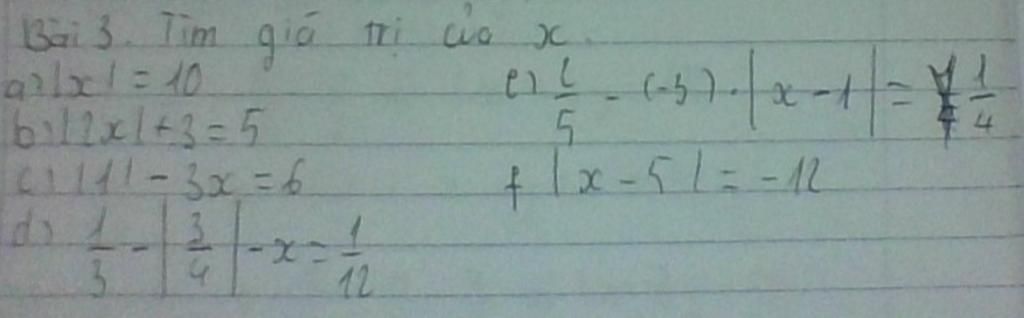 Bài 3. Tìm giá trị của x.
a) |x| = 10
b) |2x| + 3 = 5
c) |1| - 3x = 6
d) 1/3 - |3/4| - x = 1/12
e) 2/5 - (-3) . |x - 1| = 1/4
f |x - 5| = -12